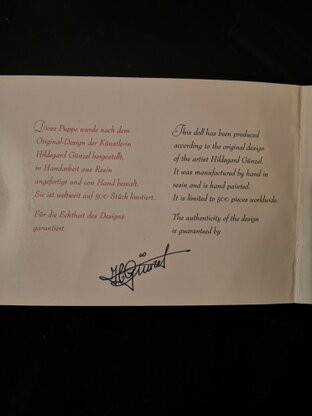 Diese Puppe wurde nach dem
Original-Design der Künstlerin
Hildegard Günzel hergestellt,
in Handarbeit aus Resin
angefertigt und von Hand bemalt.
Sie ist weltweit auf 500 Stück limitiert.
Für die Echtheit des Designs
garantiert
This doll has been produced
according to the original design
of the artist Hildegard Günzel.
It was manufactured by hand in
resin and is hand painted.
It is limited to 500 pieces worldwide.
The authenticity of the design
is guaranteed by
H Günzel